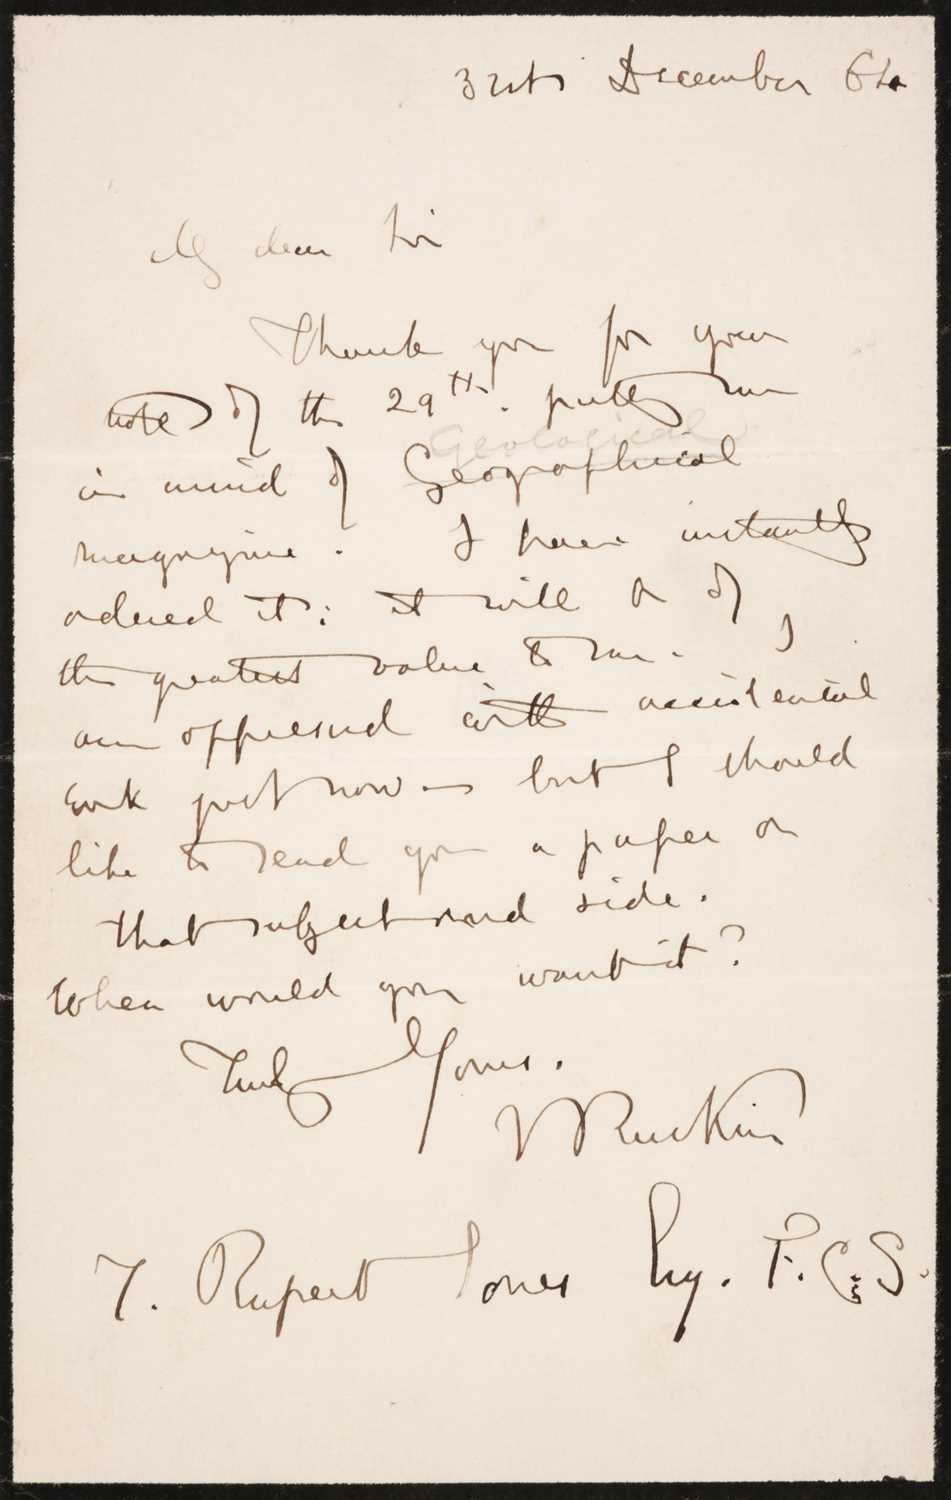 31st December 64
My dear Sir
Thank you for your
note of the 29th. putting me
Geological
in mind of Geographical
magazine. I have instantly
ordered it: it will be of
the greatest value to me. I
am oppressed with accidental
work just now - but I should
like to send you a paper on
that subject and side.
When would you want it?
Truly Yours.
J Ruskin
T. Rupert Jones Esq. F.G.S.